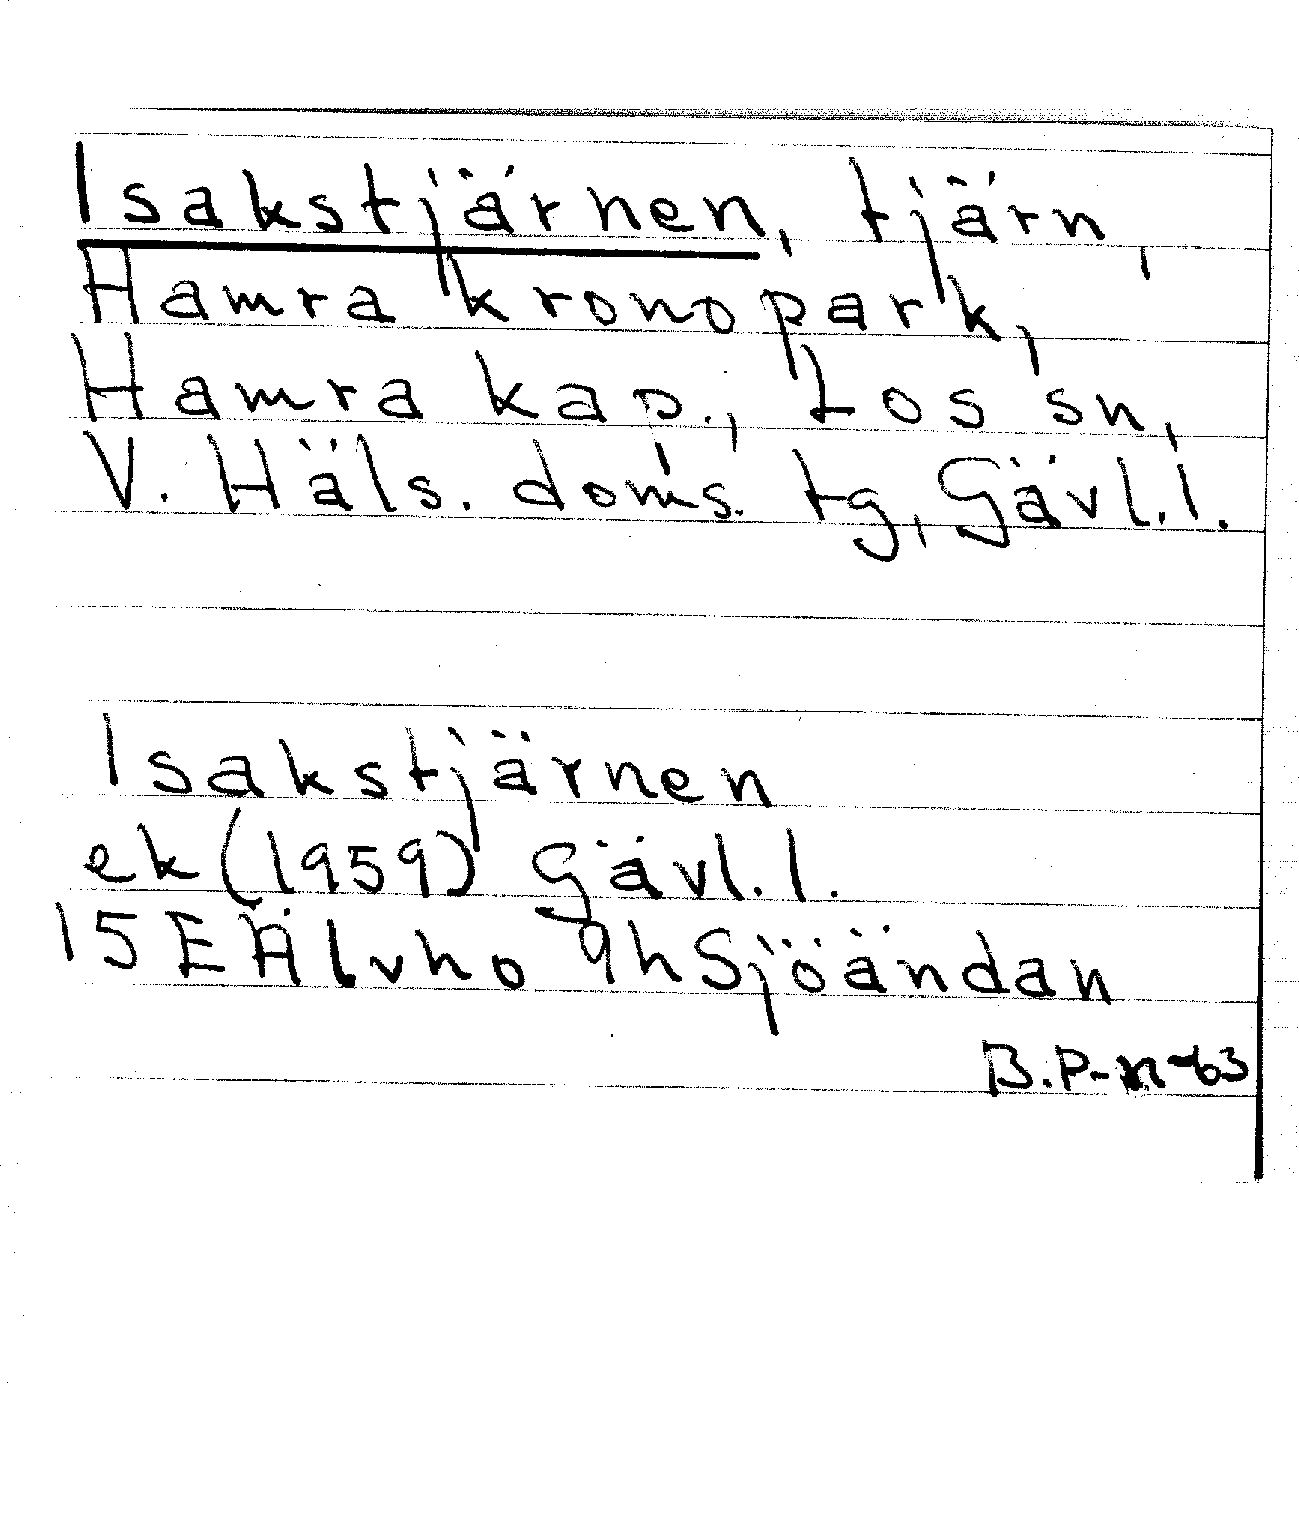 Isakstjärnen, tjärn,
Hamra kronopark,
Hamra kap., Los sn,
V. Häls. doms. tg, Gävl.l.
Isakstjärnen
ek (1959) Gävl.l.
15E Älvho 9h Sjöändan
B.P-n-63